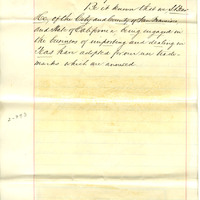 Be it known that we Siler
Co., of the City and County of San Francisco
and State of California being engaged in
the business of importing and dealing in
Teas have adopted from our trade-
marks which are annexed.